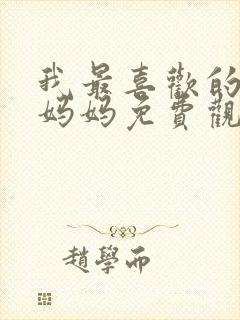 我最喜歡的
媽媽免費觀
趙學而